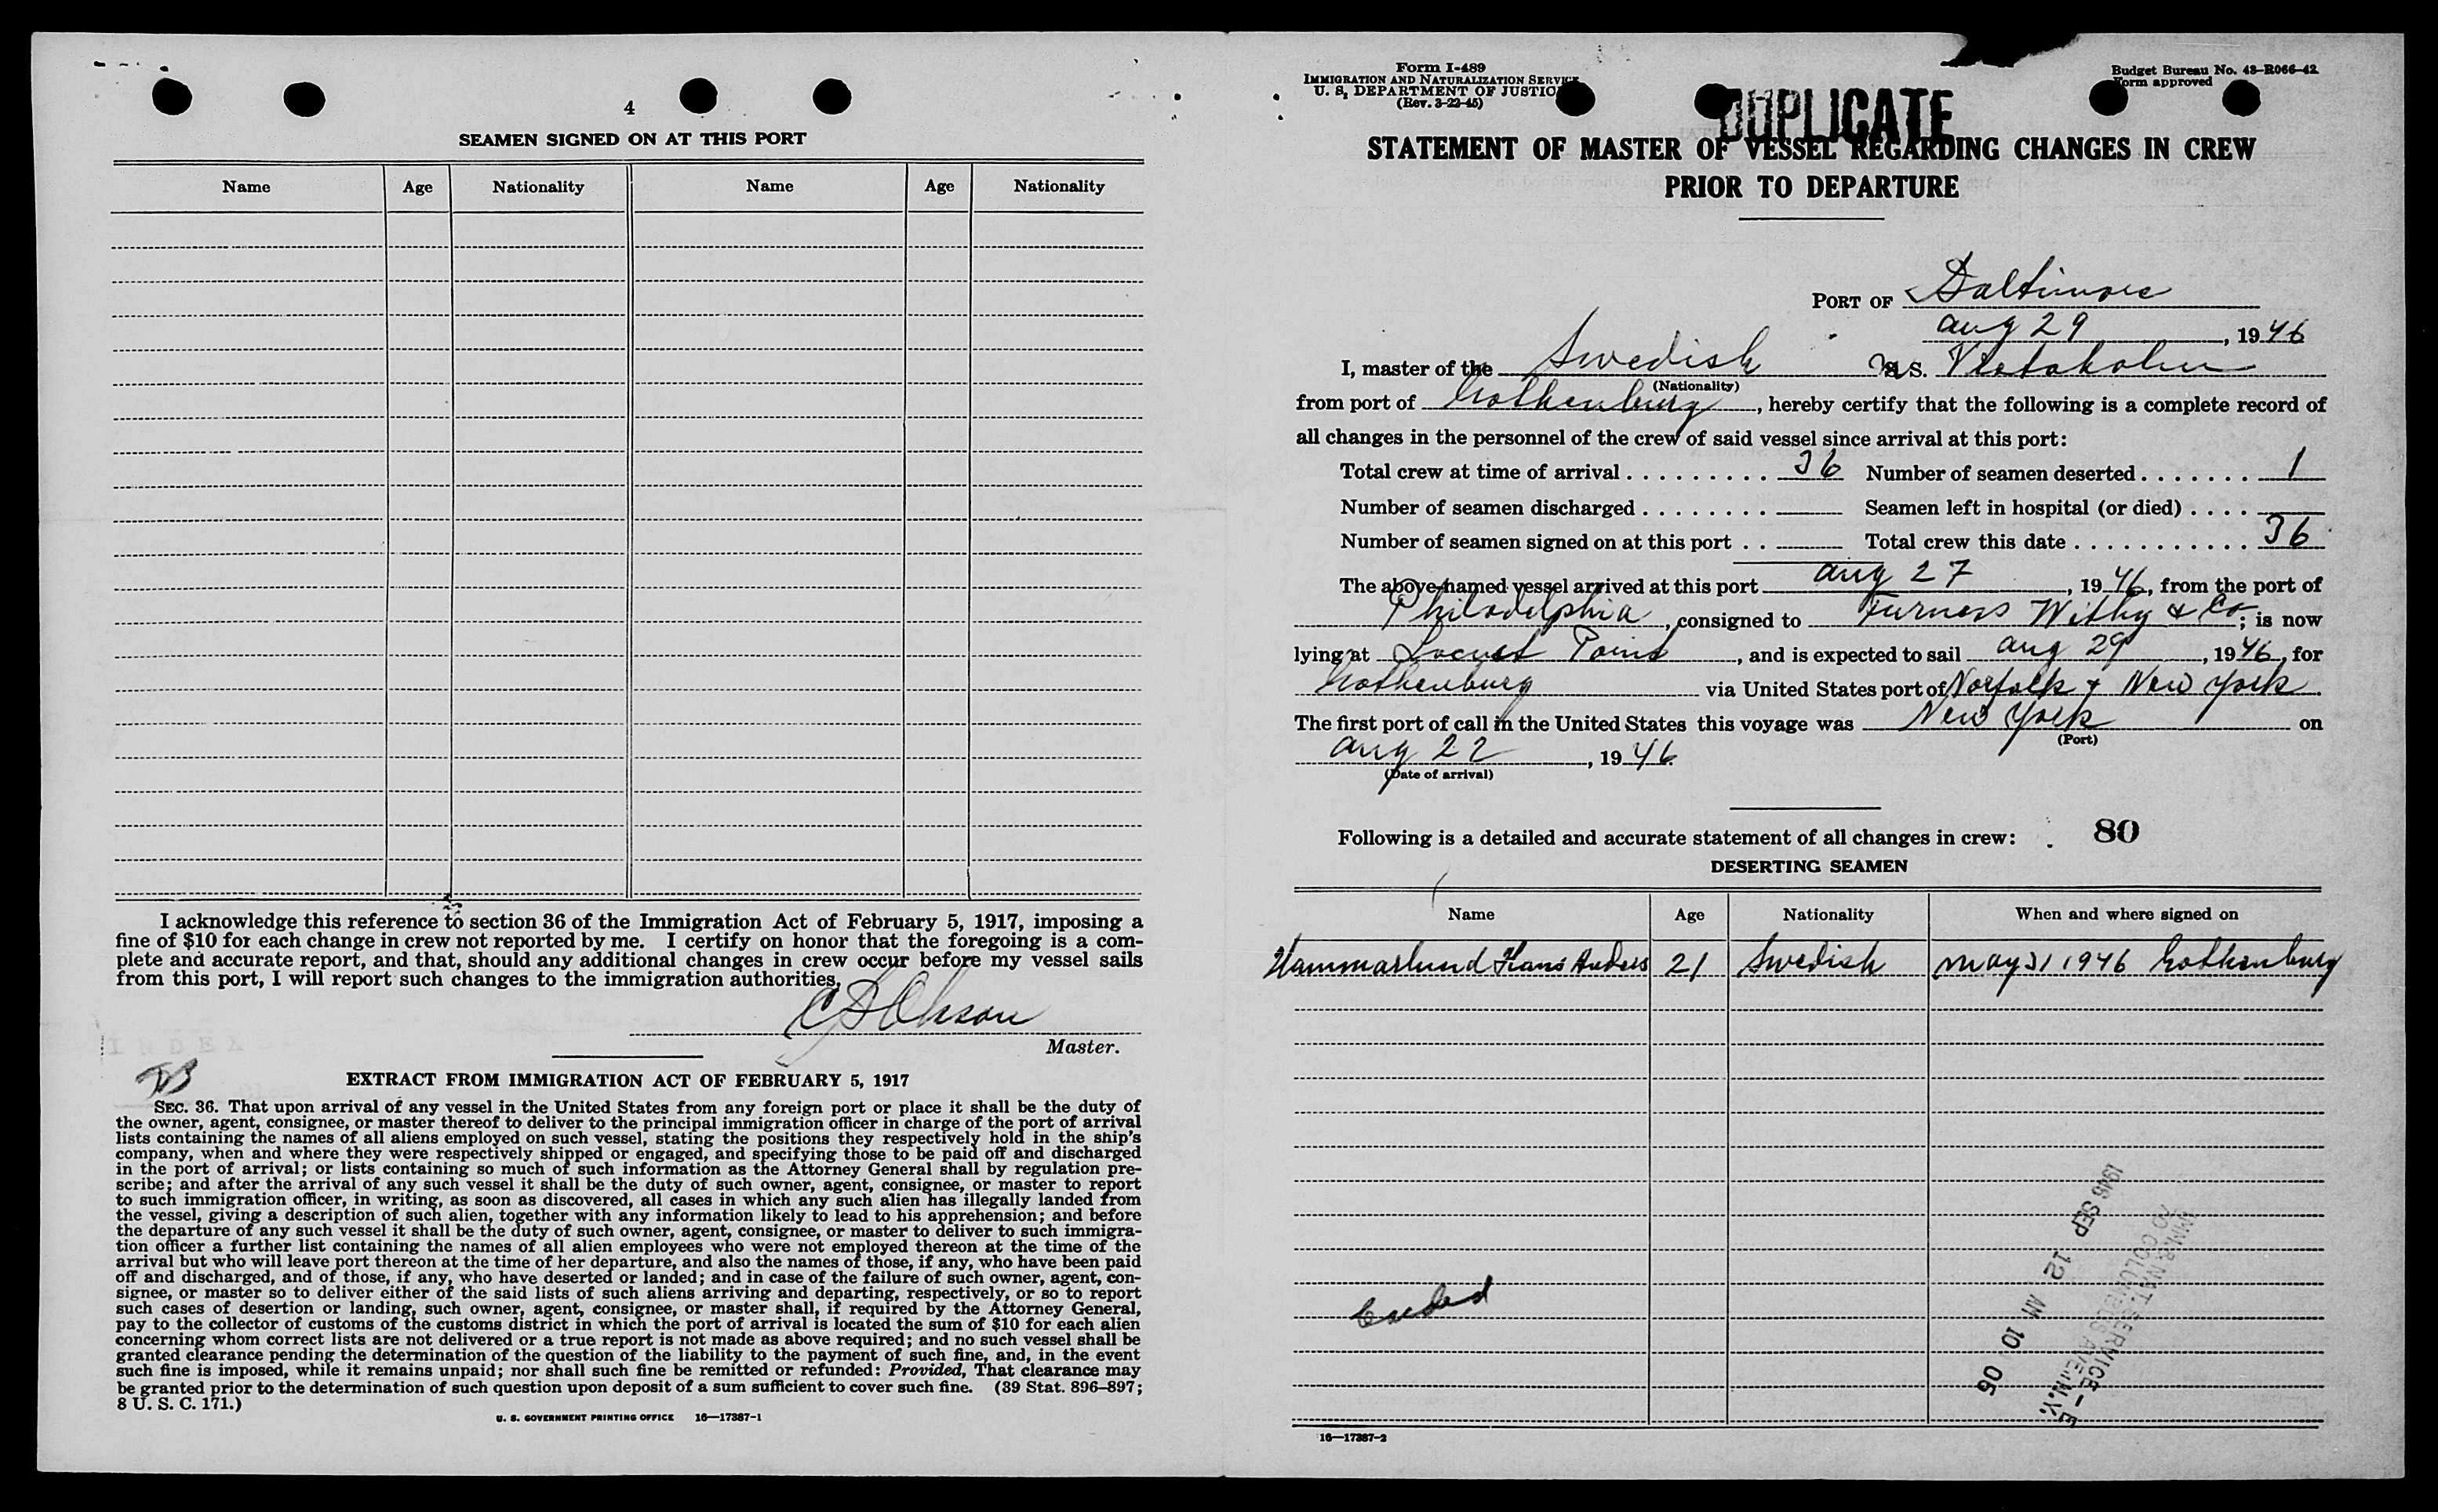 4
SEAMEN SIGNED ON AT THIS PORT
Name Age Nationality Name Age Nationality
I acknowledge this reference to section 36 of the Immigration Act of February 5, 1917, imposing a
fine of $10 for each change in crew not reported by me. I certify on honor that the foregoing is a com-
plete and accurate report, and that, should any additional changes in crew occur before my vessel sails
from this port, I will report such changes to the immigration authorities.
Master.
EXTRACT FROM IMMIGRATION ACT OF FEBRUARY 5, 1917
SEC. 36. That upon arrival of any vessel in the United States from any foreign port or place it shall be the duty of
the owner, agent, consignee, or master thereof to deliver to the principal immigration officer in charge of the port of arrival
lists containing the names of all aliens employed on such vessel, stating the positions they respectively hold in the ship's
company, when and where they were respectively shipped or engaged, and specifying those to be paid off and discharged
in the port of arrival; or lists containing so much of such information as the Attorney General shall by regulation pre-
scribe; and after the arrival of any such vessel it shall be the duty of such owner, agent, consignee, or master to report
to such immigration officer, in writing, as soon as discovered, all cases in which any such alien has illegally landed from
the vessel, giving a description of such alien, together with any information likely to lead to his apprehension; and before
the departure of any such vessel it shall be the duty of such owner, agent, consignee, or master to deliver to such immigra-
tion officer a further list containing the names of all alien employees who were not employed thereon at the time of the
arrival but who will leave port thereon at the time of her departure, and also the names of those, if any, who have been paid
off and discharged, and of those, if any, who have deserted or landed; and in case of the failure of such owner, agent, con-
signee, or master so to deliver either of the said lists of such aliens arriving and departing, respectively, or so to report
such cases of desertion or landing, such owner, agent, consignee, or master shall, if required by the Attorney General,
pay to the collector of customs of the customs district in which the port of arrival is located the sum of $10 for each alien
concerning whom correct lists are not delivered or a true report is not made as above required; and no such vessel shall be
granted clearance pending the determination of the question of the liability to the payment of such fine, and, in the event
such fine is imposed, while it remains unpaid; nor shall such fine be remitted or refunded: Provided, That clearance may
be granted prior to the determination of such question upon deposit of a sum sufficient to cover such fine. (39 Stat. 896–897;
8 U. S. C. 171.)
U. S. GOVERNMENT PRINTING OFFICE 16—17387-1
Form I-489
IMMIGRATION AND NATURALIZATION SERVICE
U. S. DEPARTMENT OF JUSTICE
(Rev. 3-22-45)
Budget Bureau No. 43-R066-42
Form approved
DUPLICATE
STATEMENT OF MASTER OF VESSEL REGARDING CHANGES IN CREW
PRIOR TO DEPARTURE
PORT OF Baltimore
Aug 29, 1946
I, master of the Swedish M S. Vretaholm
(Nationality)
from port of Gothenburg, hereby certify that the following is a complete record of
all changes in the personnel of the crew of said vessel since arrival at this port:
Total crew at time of arrival 36 Number of seamen deserted 1
Number of seamen discharged Seamen left in hospital (or died)
Number of seamen signed on at this port Total crew this date 36
The above-named vessel arrived at this port Aug 27, 1946, from the port of
Philadelphia, consigned to Furness Withy & Co; is now
lying at Locust Point, and is expected to sail Aug 29, 1946, for
Gothenburg via United States port of Norfolk & New York
The first port of call in the United States this voyage was New York on
(Port)
Aug 22, 1946
(Date of arrival)
Following is a detailed and accurate statement of all changes in crew: 80
DESERTING SEAMEN
Name Age Nationality When and where signed on
Hammarlund Hans Anders 21 Swedish May 31 1946 Gothenburg
Carded
1946 SEP 12 AM 10 06
IMM. & NAT. SERVICE –
70 COLUMBUS AVE. N.Y.
16—17387-2